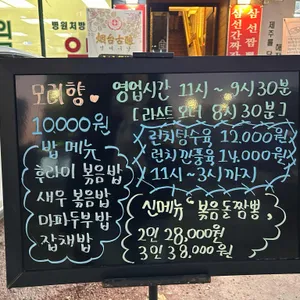 병원처방
烟台古酿
삼선짬뽕
삼선간짜장
모리향
영업시간 11시~9시30분
[라스트 오더 8시30분]
10,000원
밥 메뉴
후라이 볶음밥
새우 볶음밥
마파두부밥
잡채밥
런치탕수육 12,000원
런치깐풍육 14,000원
11시~3시까지
신메뉴 "볶음돌짬뽕,
2인 28,000원
3인 38,000원